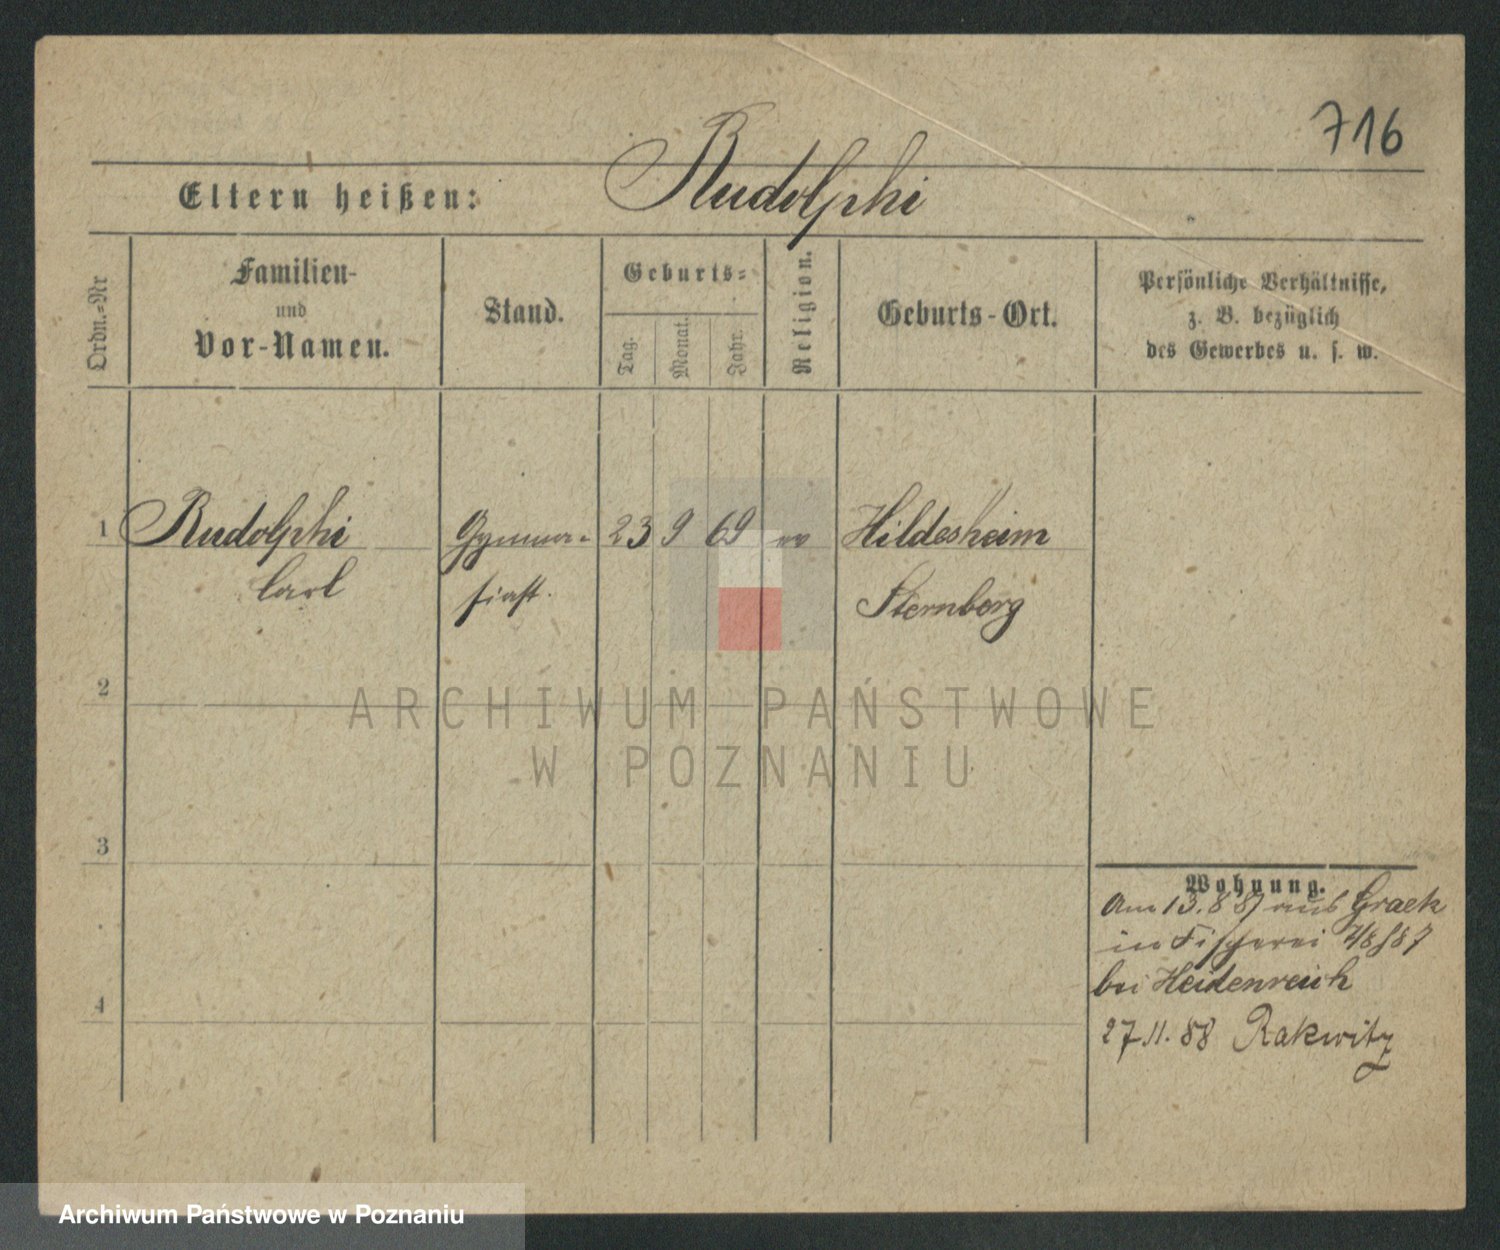 716
Eltern heißen: Rudolphi
Ordn.-Nr
Familien-
und
Vor-Namen.
Stand.
Geburts-
Tag.
Monat.
Jahr.
Religion.
Geburts-Ort.
Persönliche Verhältnisse,
z. B. bezüglich
des Gewerbes u. s. w.
1 Rudolphi Gymna- 23 9 69 ev Hildesheim
Carl siast. Sternberg
2
ARCHIWUM PAŃSTWOWE
W POZNANIU
3
Wohnung.
Am 13.8 87 aus Graetz
in Fischerei 7/8 87
bei Heidenreich
4
27.11.88 Rakwitz
Archiwum Państwowe w Poznaniu